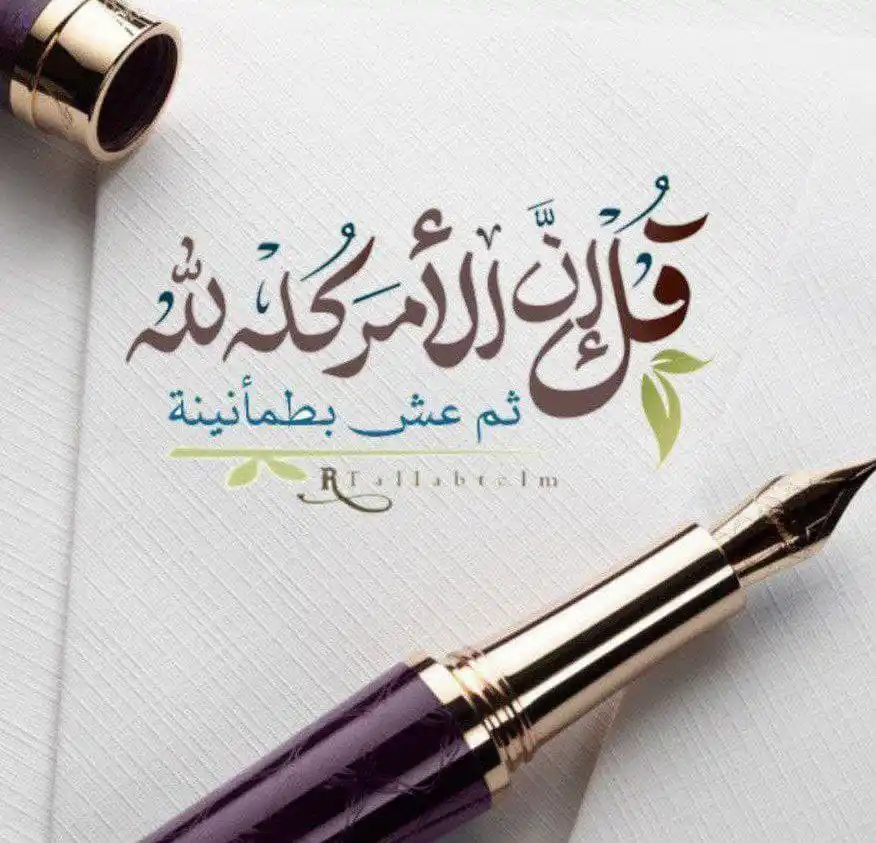 قُل إِنَّ الأمرَ كُلهُ لله
ثم عش بطمأنينة
RTallabtelm